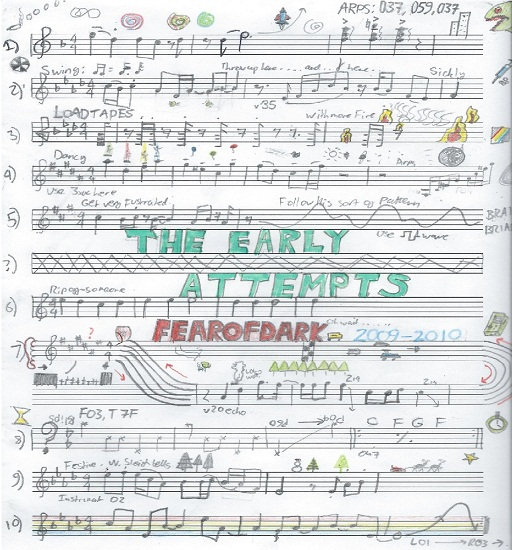 ARPS: 037, 059, 037
1)
Swing:
Throw up here..... and.... here.
Sickly
2)
v35
LOADTAPES
with more Fire
3)
Dancy
Arps
4)
Use 3xx here
Get very frustrated
Follow this sort of pattern
5)
Use wave
THE EARLY
?)
ATTEMPTS
Rip off-someone
6)
FEAROFDARK
Oh wait......
2009-2010
?
7)
214
214
v20 echo
F03, T7F
C F G F
8)
Ex7
Festive. w. Sleigh bells
9)
Instrument 02
10)
L01 R03